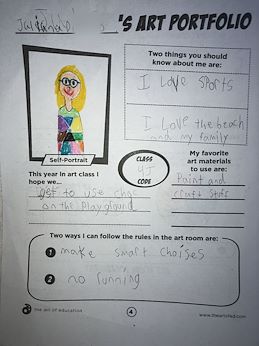 'S ART PORTFOLIO
Two things you should
know about me are:
I love sports
I love the beach
and my family
Self-Portrait
CLASS
4J
CODE
My favorite
art materials
to use are:
Paint and
craft
This year in art class I
hope we...
get to use
on the playground
Two ways I can follow the rules in the art room are:
1 make smart choises
2 no running
the art of education
4
www.theartofed.com